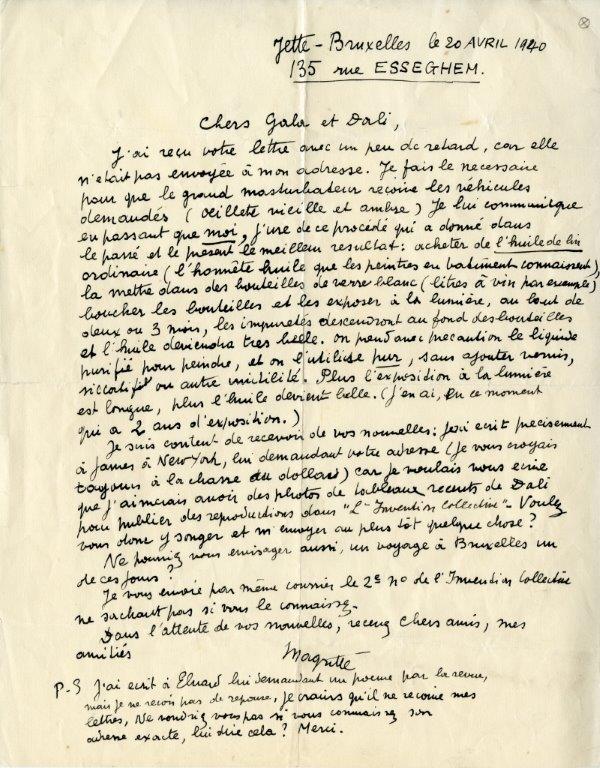 Jette - Bruxelles le 20 AVRIL 1940
135 rue ESSEGHEM.
Chers Gala et Dali,
J'ai reçu votre lettre avec un peu de retard, car elle
n'était pas envoyée à mon adresse. Je fais le necessaire
pour que le grand masturbateur reçoive les véhicules
demandés (oeillette vieille et ambre) Je lui communique
en passant que moi, j'use de ce procédé qui a donné dans
le passé et le présent le meilleur resultat: acheter de l'huile de lin
ordinaire (l'honnête huile que les peintres en batiment connaissent),
la mettre dans des bouteilles de verre blanc (litres à vin par exemple)
boucher les bouteilles et les exposer à la lumière, au bout de
deux ou 3 mois, les impuretés descendront au fond des bouteilles
et l'huile deviendra très belle. On prend avec precaution le liquide
purifié pour peindre, et on l'utilise pur, sans ajouter vernis,
siccatif ou autre inutilité. Plus l'exposition à la lumière
est longue, plus l'huile devient belle. (J'en ai, en ce moment
qui a 2 ans d'exposition.)
Je suis content de recevoir de vos nouvelles: j'ai ecrit precisement
à James à New York, lui demandant votre adresse (je vous croyais
toujours à la chasse au dollars) car je voulais vous ecrire
que j'aimerais avoir des photos de tableaux recents de Dali
pour publier des reproductions dans "L'Invention Collective" - Voulez
vous donc y songer et m'envoyer au plus tôt quelque chose?
Ne pourriez vous envisager aussi, un voyage à Bruxelles un
de ces jours?
Je vous envoie par même courrier le 2e no de l'Invention Collective
ne sachant pas si vous le connaissez.
Dans l'attente de vos nouvelles, recevez chers amis, mes
amitiés
Magritte
P-S J'ai ecrit à Eluard lui demandant un poeme par la revue,
mais je ne reçois pas de reponse, je crains qu'il ne reçoive mes
lettres, Ne voudriez vous pas si vous connaissez son
adresse exacte, lui dire cela? Merci.